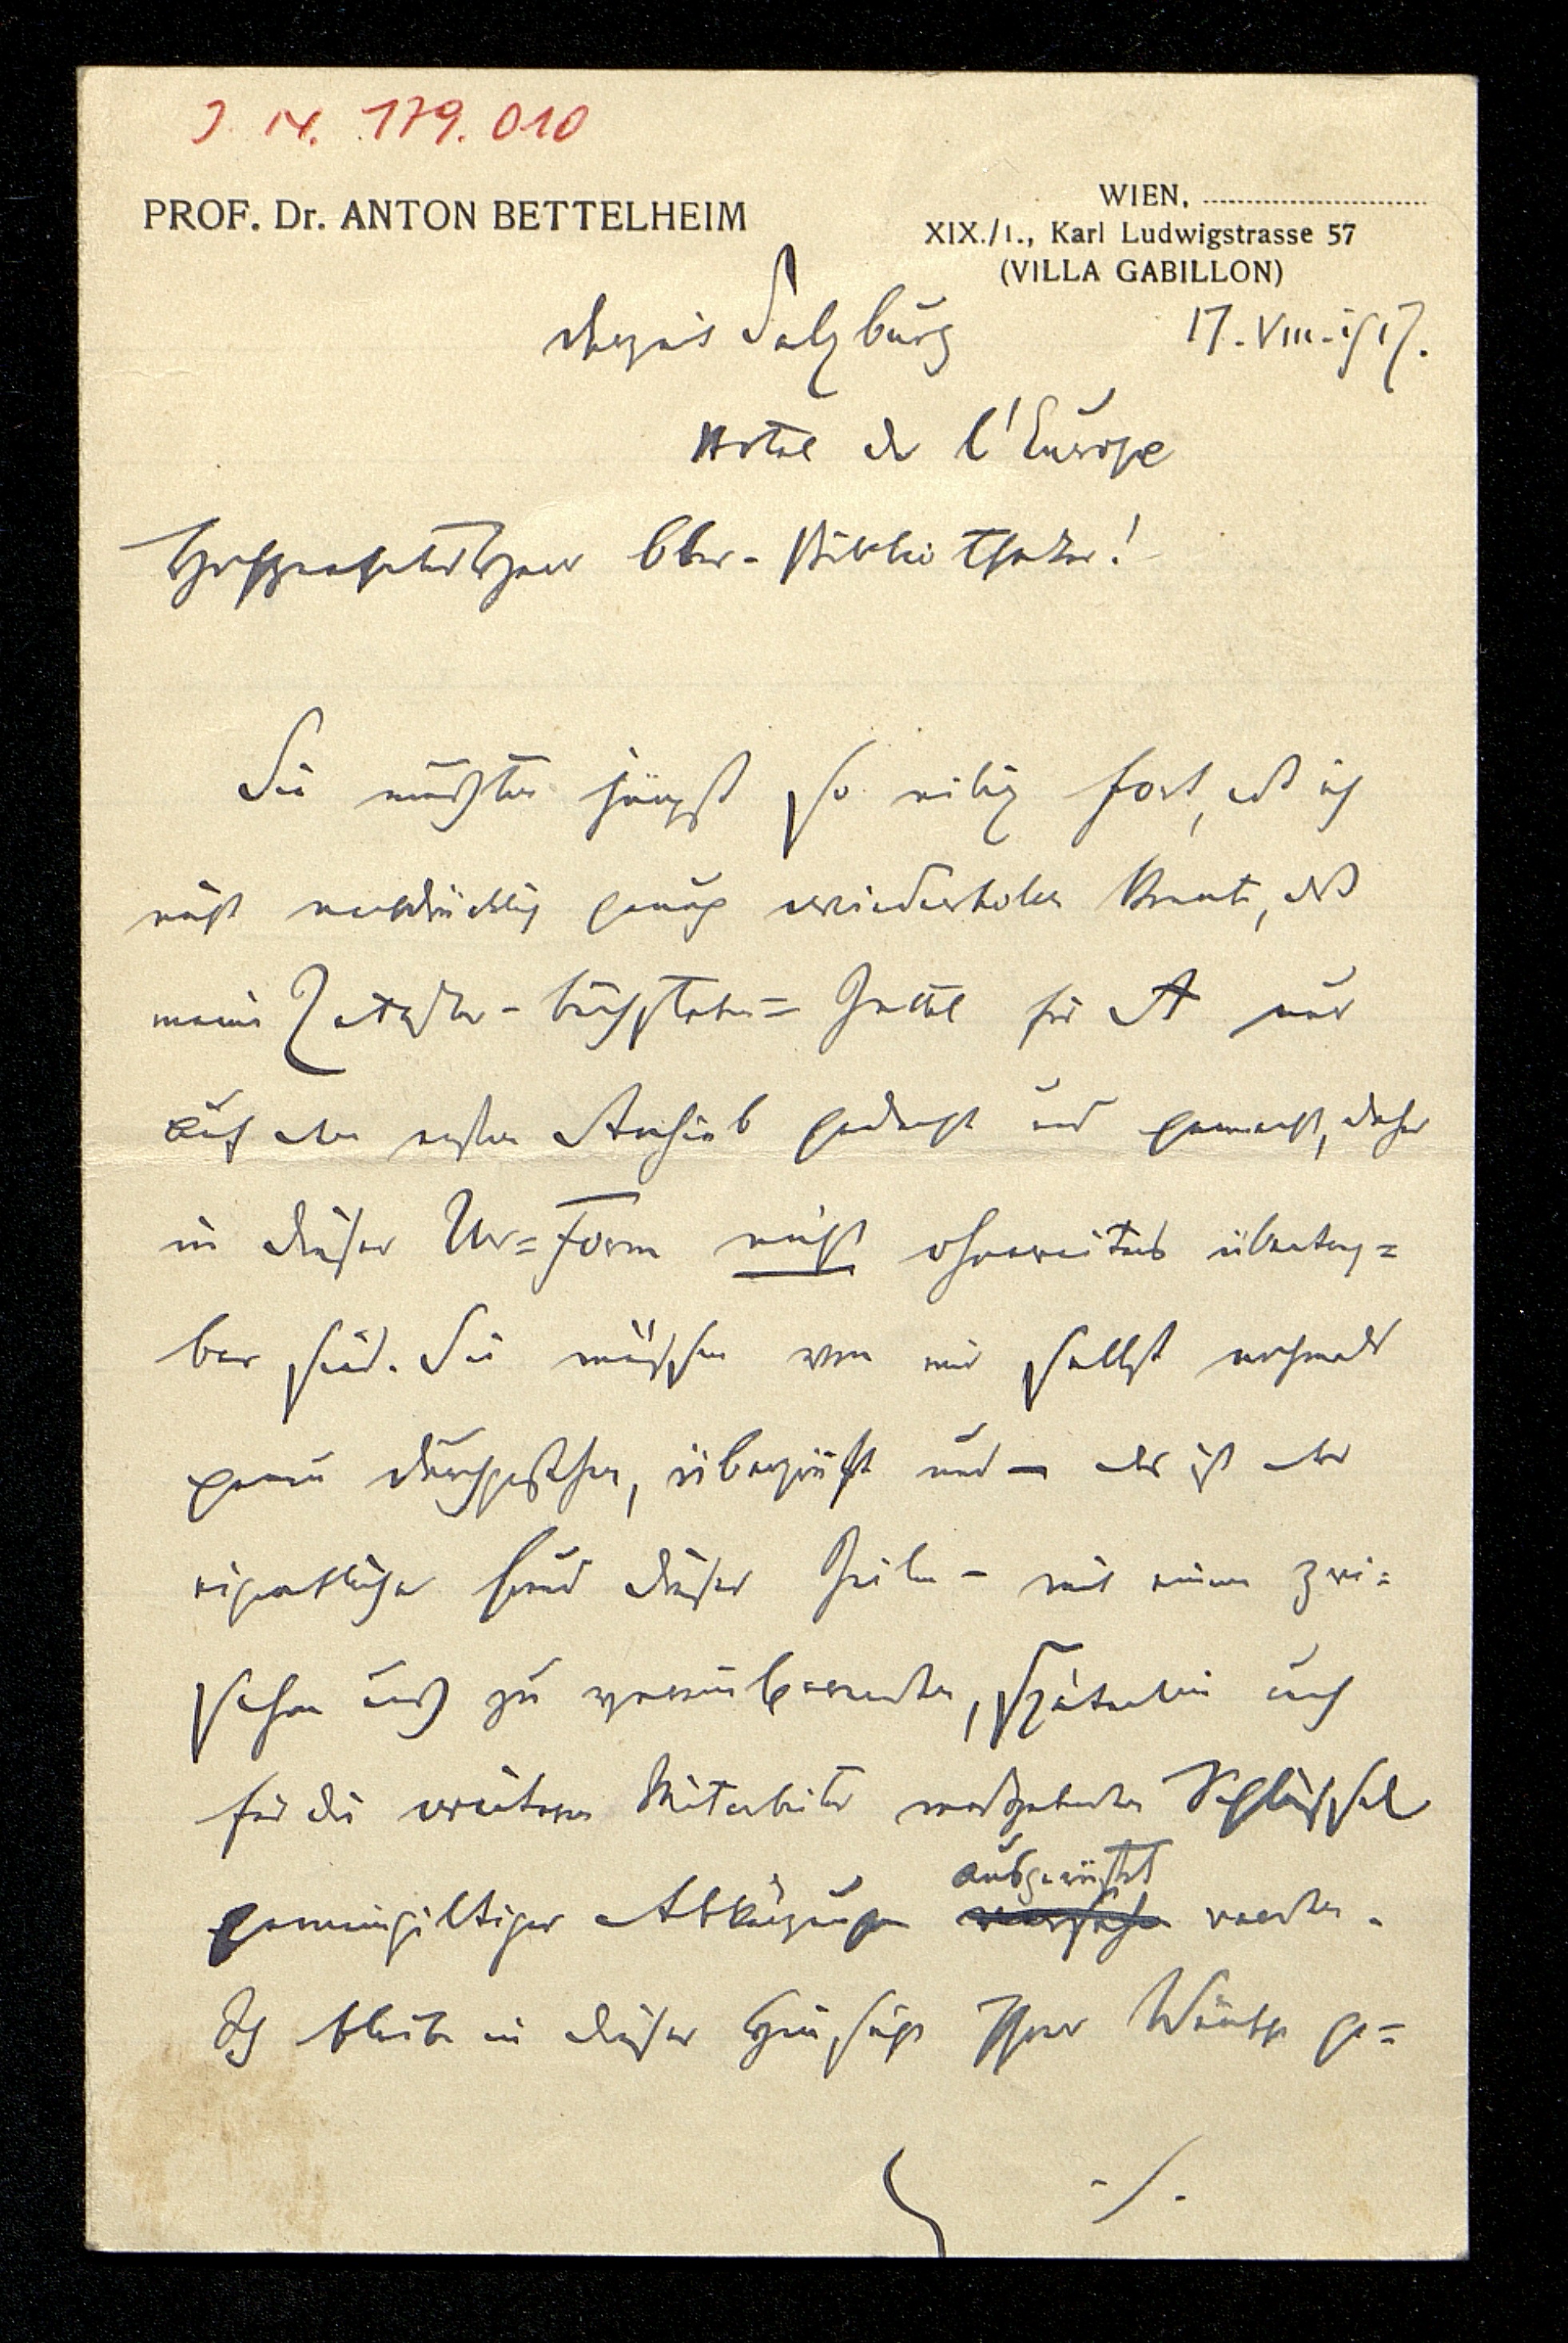 J. N. 179.010
PROF. Dr. ANTON BETTELHEIM
WIEN, 
XIX./1., Karl Ludwigstrasse 57
(VILLA GABILLON)
Salzburg 17. VIII. 1917.
Hotel de l'Europe
Hochgeehrter Herr Ober-Bibliothekar!
Sie mußten jüngst so eilig fort, daß ich
nicht nachdrücklich genug wiederholen konnte, daß
meine Buchstaben= Zettel für A nur
auf den ersten Anhieb gedacht und gemacht, daher
in dieser Ur=Form nicht ohneweiters übertrag=
bar sind. Sie müssen von mir selbst nochmals
genau durchgesehen, überprüft und – das ist der
eigentliche Grund dieser Zeilen – mit einem zwi=
schen uns zu vereinbarenden, späterhin auch
für die weiteren Mitarbeiter maßgebenden Schlüssel
gemeingiltiger Abkürzungen ausgerüstet werden.
Ich bleibe in dieser Hinsicht Ihrer Winke ge=
./.